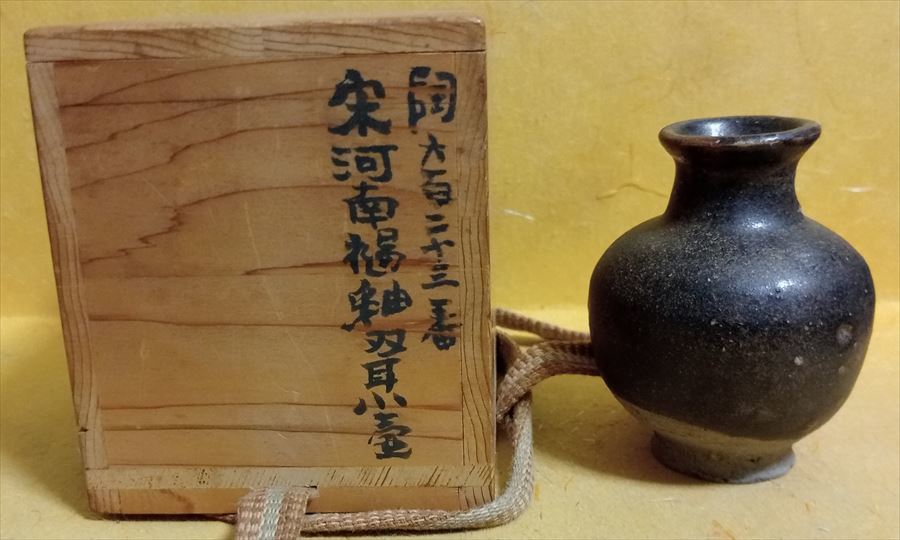 陶六百二十三番
宋河南褐釉双耳小壷